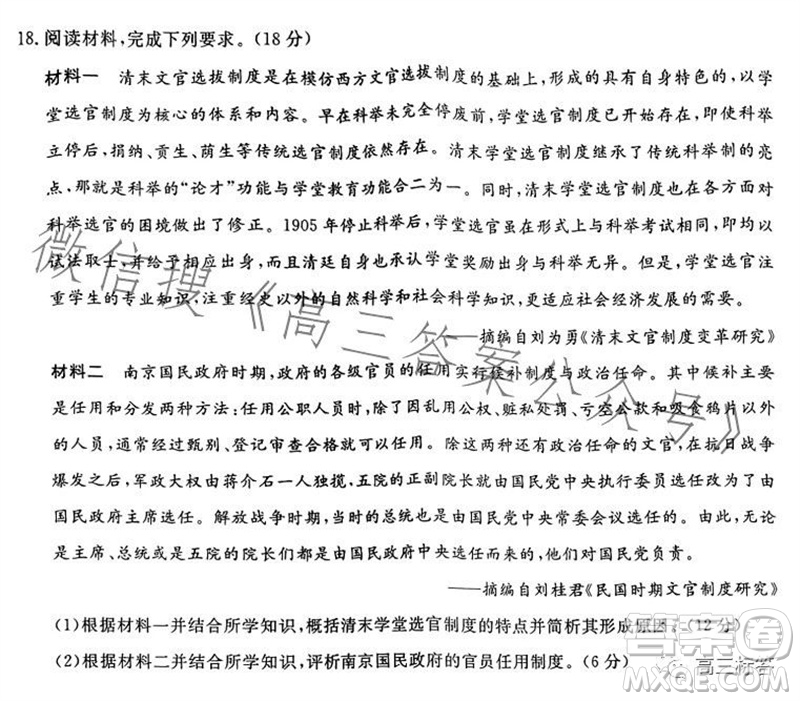 18.阅读材料,完成下列要求。(18分)
材料一 清末文官选拔制度是在模仿西方文官选拔制度的基础上,形成的具有自身特色的,以学
堂选官制度为核心的体系和内容。早在科举未完全停废前,学堂选官制度已开始存在,即使科举
立停后,捐纳、贡生、荫生等传统选官制度依然存在。清末学堂选官制度继承了传统科举制的亮
点,那就是科举的“论才”功能与学堂教育功能合二为一。同时,清末学堂选官制度也在各方面对
科举选官的困境做出了修正。1905年停止科举后,学堂选官虽在形式上与科举考试相同,即均以
试法取士,并给予相应出身,而且清廷自身也承认学堂奖励出身与科举无异。但是,学堂选官注
重学生的专业知识,注重经史以外的自然科学和社会科学知识,更适应社会经济发展的需要。
——摘编自刘为勇《清末文官制度变革研究》
材料二 南京国民政府时期,政府的各级官员的任用实行候补制度与政治任命。其中候补主要
是任用和分发两种方法:任用公职人员时,除了因乱用公权、赃私处罚、亏空公款和吸食鸦片以外
的人员,通常经过甄别、登记审查合格就可以任用。除这些以外还有政治任命的文官,在抗日战争
爆发之后,军政大权由蒋介石一人独揽,五院的正副院长就由国民党中央执行委员选任改为了由
国民政府主席选任。解放战争时期,当时的总统也是由国民党中央常委会议选任的。由此,无论
是主席、总统或是五院的院长们都是由国民政府中央选任而来的,他们对国民党负责。
——摘编自刘桂君《民国时期文官制度研究》
(1)根据材料一并结合所学知识,概括清末学堂选官制度的特点并简析其形成原因。(12分)
(2)根据材料二并结合所学知识,评析南京国民政府的官员任用制度。(6分)
微信搜《高三答案公众号》
高三标答
答案卷
MXQE.COM